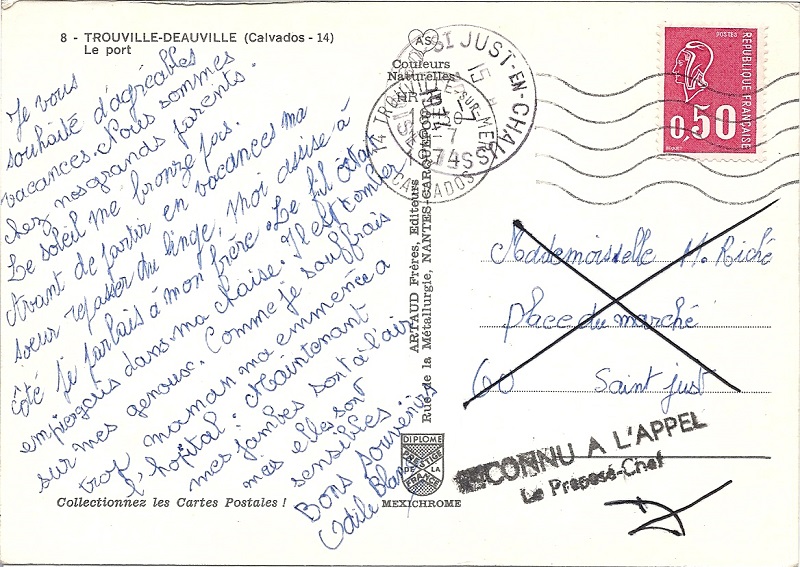 8 - TROUVILLE-DEAUVILLE (Calvados - 14)
Le port
Je vous
souhaite d'agréables
vacances. Nous sommes
chez nos grands parents.
Le soleil me bronze pas.
Avant de partir en vacances ma
soeur repasser du linge, moi assise à
côté je parlais à mon frère. Le fil était
emperçais dans ma chaise. Il est tomber
sur mes genoux. Comme je souffrais
trop maman ma emmenée a
l'hopital. Maintenant
mes jambes sont à l'air
mais elle sont
sensibles.
Bons Souvenirs
Odile Blan
Collectionnez les Cartes Postales !
AS
Couleurs
Naturelles
14 TROUVILLE-SUR-MER
CALVADOS
ST JUST-EN-CHAUSSÉE
ARTAUD Frères, Editeurs
Rue de la Métallurgie, NANTES-CARQUEFOU
DIPLOME
PRESTIGE
DE LA
FRANCE
MEXICHROME
POSTES
REPUBLIQUE FRANÇAISE
0,50
Mademoiselle M. Riché
place du marché
60 Saint just
INCONNU A L'APPEL
Le Préposé-Chef